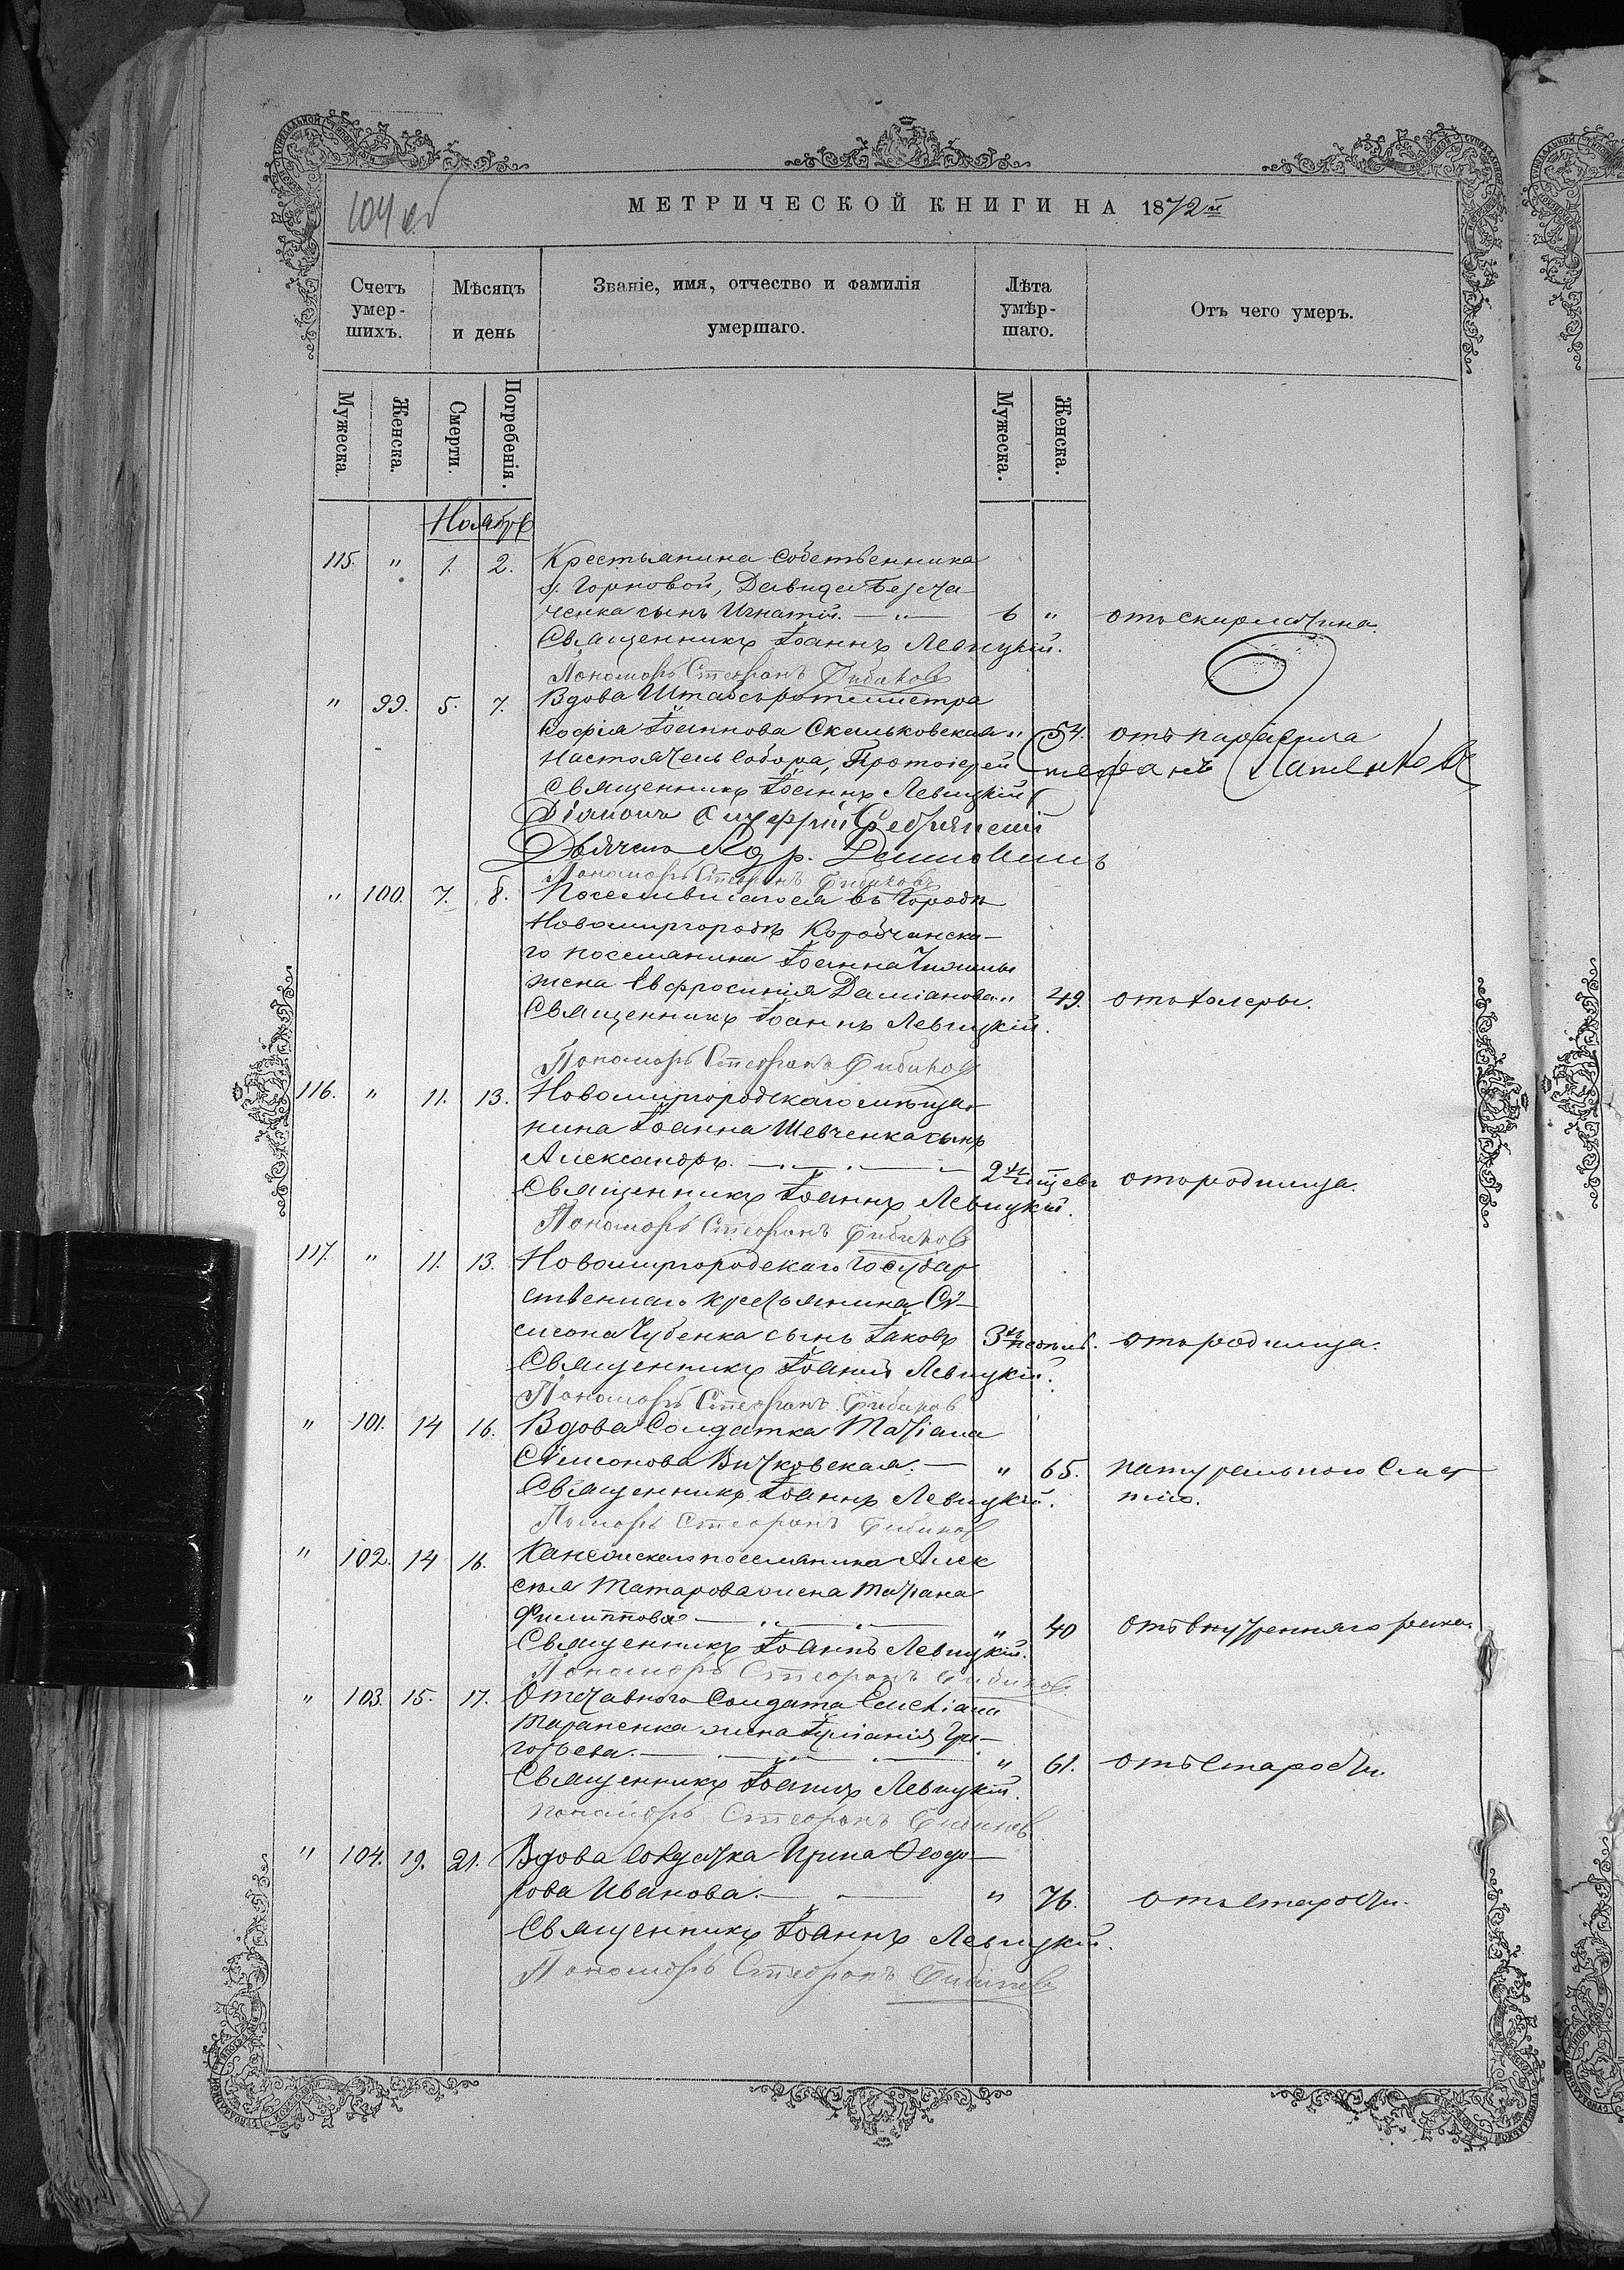 104 об
МЕТРИЧЕСКОЙ КНИГИ НА 1872й
Счетъ умер-шихъ.
Мѣсяцъ и день
Званіе, имя, отчество и фамилія умершаго.
Лѣта умѣр-шаго.
Отъ чего умеръ.
Мужеска.
Женска.
Смерти.
Погребенія.
Мужеска.
Женска.
Ноябрь
115. " 1. 2. Крестьянина собственника
Горновой, Давида
ченка сынъ Игнатій. — " — 6 " отъ скарлатина.
Священникъ Іоаннъ Левицкій.
Пономарь Стефанъ Бибиковъ
" 99. 5. 7. Вдова Штабсъ ротмистра
Софія Іоаннова Скальковская " 54. отъ паралича
Настоятель собора, Протоіерей Стефанъ
Священникъ Іоаннъ Левицкій
Діаконъ
Дьячекъ
Пономарь Стефанъ Бибиковъ
" 100. 7. 8. Поселившагося въ городѣ
Новомиргородѣ Коробчинска-
го поселянина Іоанна
жена Евфросинія Даміанова " 49. отъ холеры.
Священникъ Іоаннъ Левицкій.
Пономарь Стефанъ Бибиковъ
116. " 11. 13. Новомиргородскаго мѣща-
нина Іоанна Шевченка сынъ
Александръ. — . — . — 2хъ мѣсцевъ отъ родимца.
Священникъ Іоаннъ Левицкій.
Пономарь Стефанъ Бибиковъ
117. " 11. 13. Новомиргородскаго Государ
ственнаго крестьянина Сѵ-
меона Чубенка сынъ Іаковъ 3хъ недѣль. отъ родимца.
Священникъ Іоаннъ Левицкій.
Пономарь Стефанъ Бибиковъ
" 101. 14 16. Вдова Солдатка Татіана
Сѵмеонова Вичковская. — " 65. натуральною смер
тію.
Священникъ Іоаннъ Левицкій.
Стефанъ Бибиковъ
" 102. 14 16. поселянина Алек
сѣя Татарова жена Татіана
Филиппова — . . — . — " 40 отъ внутренняго рака.
Священникъ Іоаннъ Левицкій.
Пономарь Стефанъ Бибиковъ
" 103. 15. 17. Отставного Солдата
Тараненка жена Іуліанія Гри-
горьева. — . — . — " 61. отъ старости.
Священникъ Іоаннъ Левицкій.
Пономарь Стефанъ Бибиковъ
" 104. 19. 21. Вдова солдатка Ирина Ѳеодо-
рова Иванова. — — " 76. отъ старости.
Священникъ Іоаннъ Левицкій.
Пономарь Стефанъ Бибиковъ